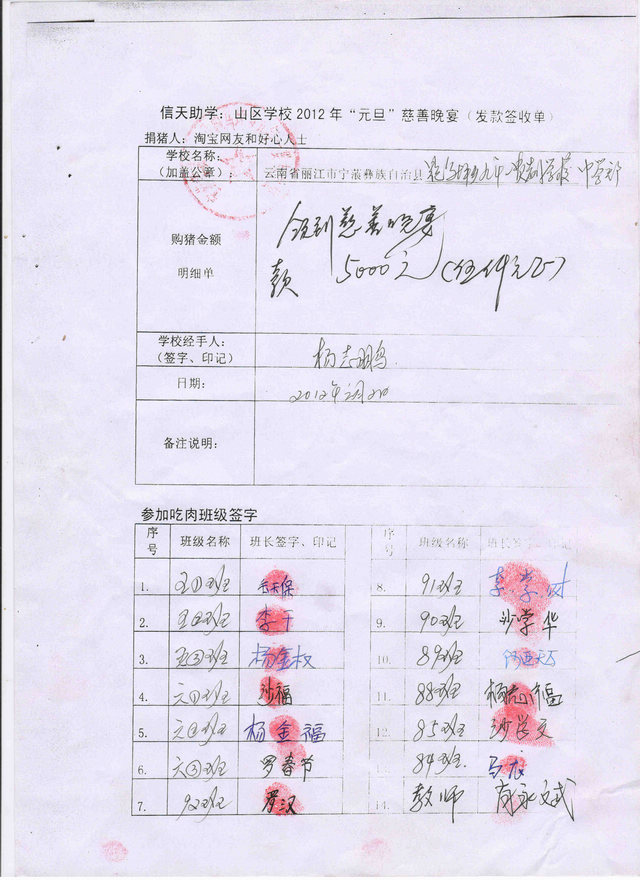 信天助学：山区学校2012年“元旦”慈善晚宴（发款签收单）
捐猪人：淘宝网友和好心人士
学校名称：
（加盖公章）：
云南省丽江市宁蒗彝族自治县 中学部
购猪金额
明细单
领到慈善晚宴
款 5000元(伍仟元正)
学校经手人：
（签字、印记）
杨志鹏
日期：
2012年
备注说明：
参加吃肉班级签字
序号 班级名称 班长签字、印记 序号 班级名称 班长签字、印记
1. 五①班 8. 91班 李学才
2. 五②班 李千 9. 90班 沙学华
3. 五③班 杨金权 10. 89班
4. 六①班 沙福 11. 88班 杨志福
5. 六②班 杨金福 12. 85班 沙学文
6. 六③班 罗春节 13. 84班.
7. 92班 罗汉 14. 教师